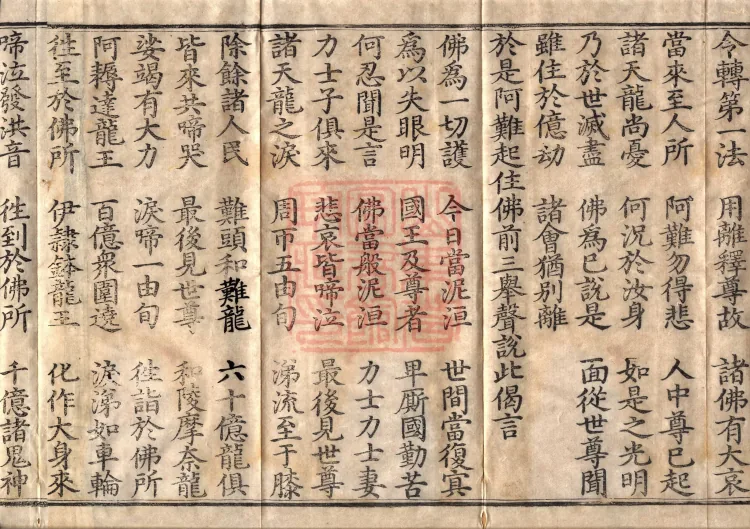 令轉第一法　用離釋尊故　諸佛有大哀
當來至人所　阿難勿得悲　人中尊已起
諸天龍尚憂　何況於汝身　如是之光明
乃於世滅盡　佛為已說是　面從世尊聞
雖住於億劫　諸會猶別離
於是阿難起住佛前三舉聲說此偈言
佛為一切護　今日當泥洹　世間當復寘
為以失眼明　國王及尊者　畢厮國勤苦
何忍聞是言　佛當般泥洹　力士力士妻
力士子俱來　悲哀皆啼泣　最後見世尊
諸天龍之淚　周帀五由旬　涕流至于膝
除餘諸人民　難頭和難龍　六十億龍俱
皆來共啼哭　最後見世尊　和陵摩奈龍
娑竭有大力　淚啼一由旬　徃詣於佛所
阿耨達龍王　百億衆圍遶　淚涕如車輪
徃至於佛所　伊隷鉢龍王　化作大身來
啼泣發洪音　徃到於佛所　千億諸鬼神